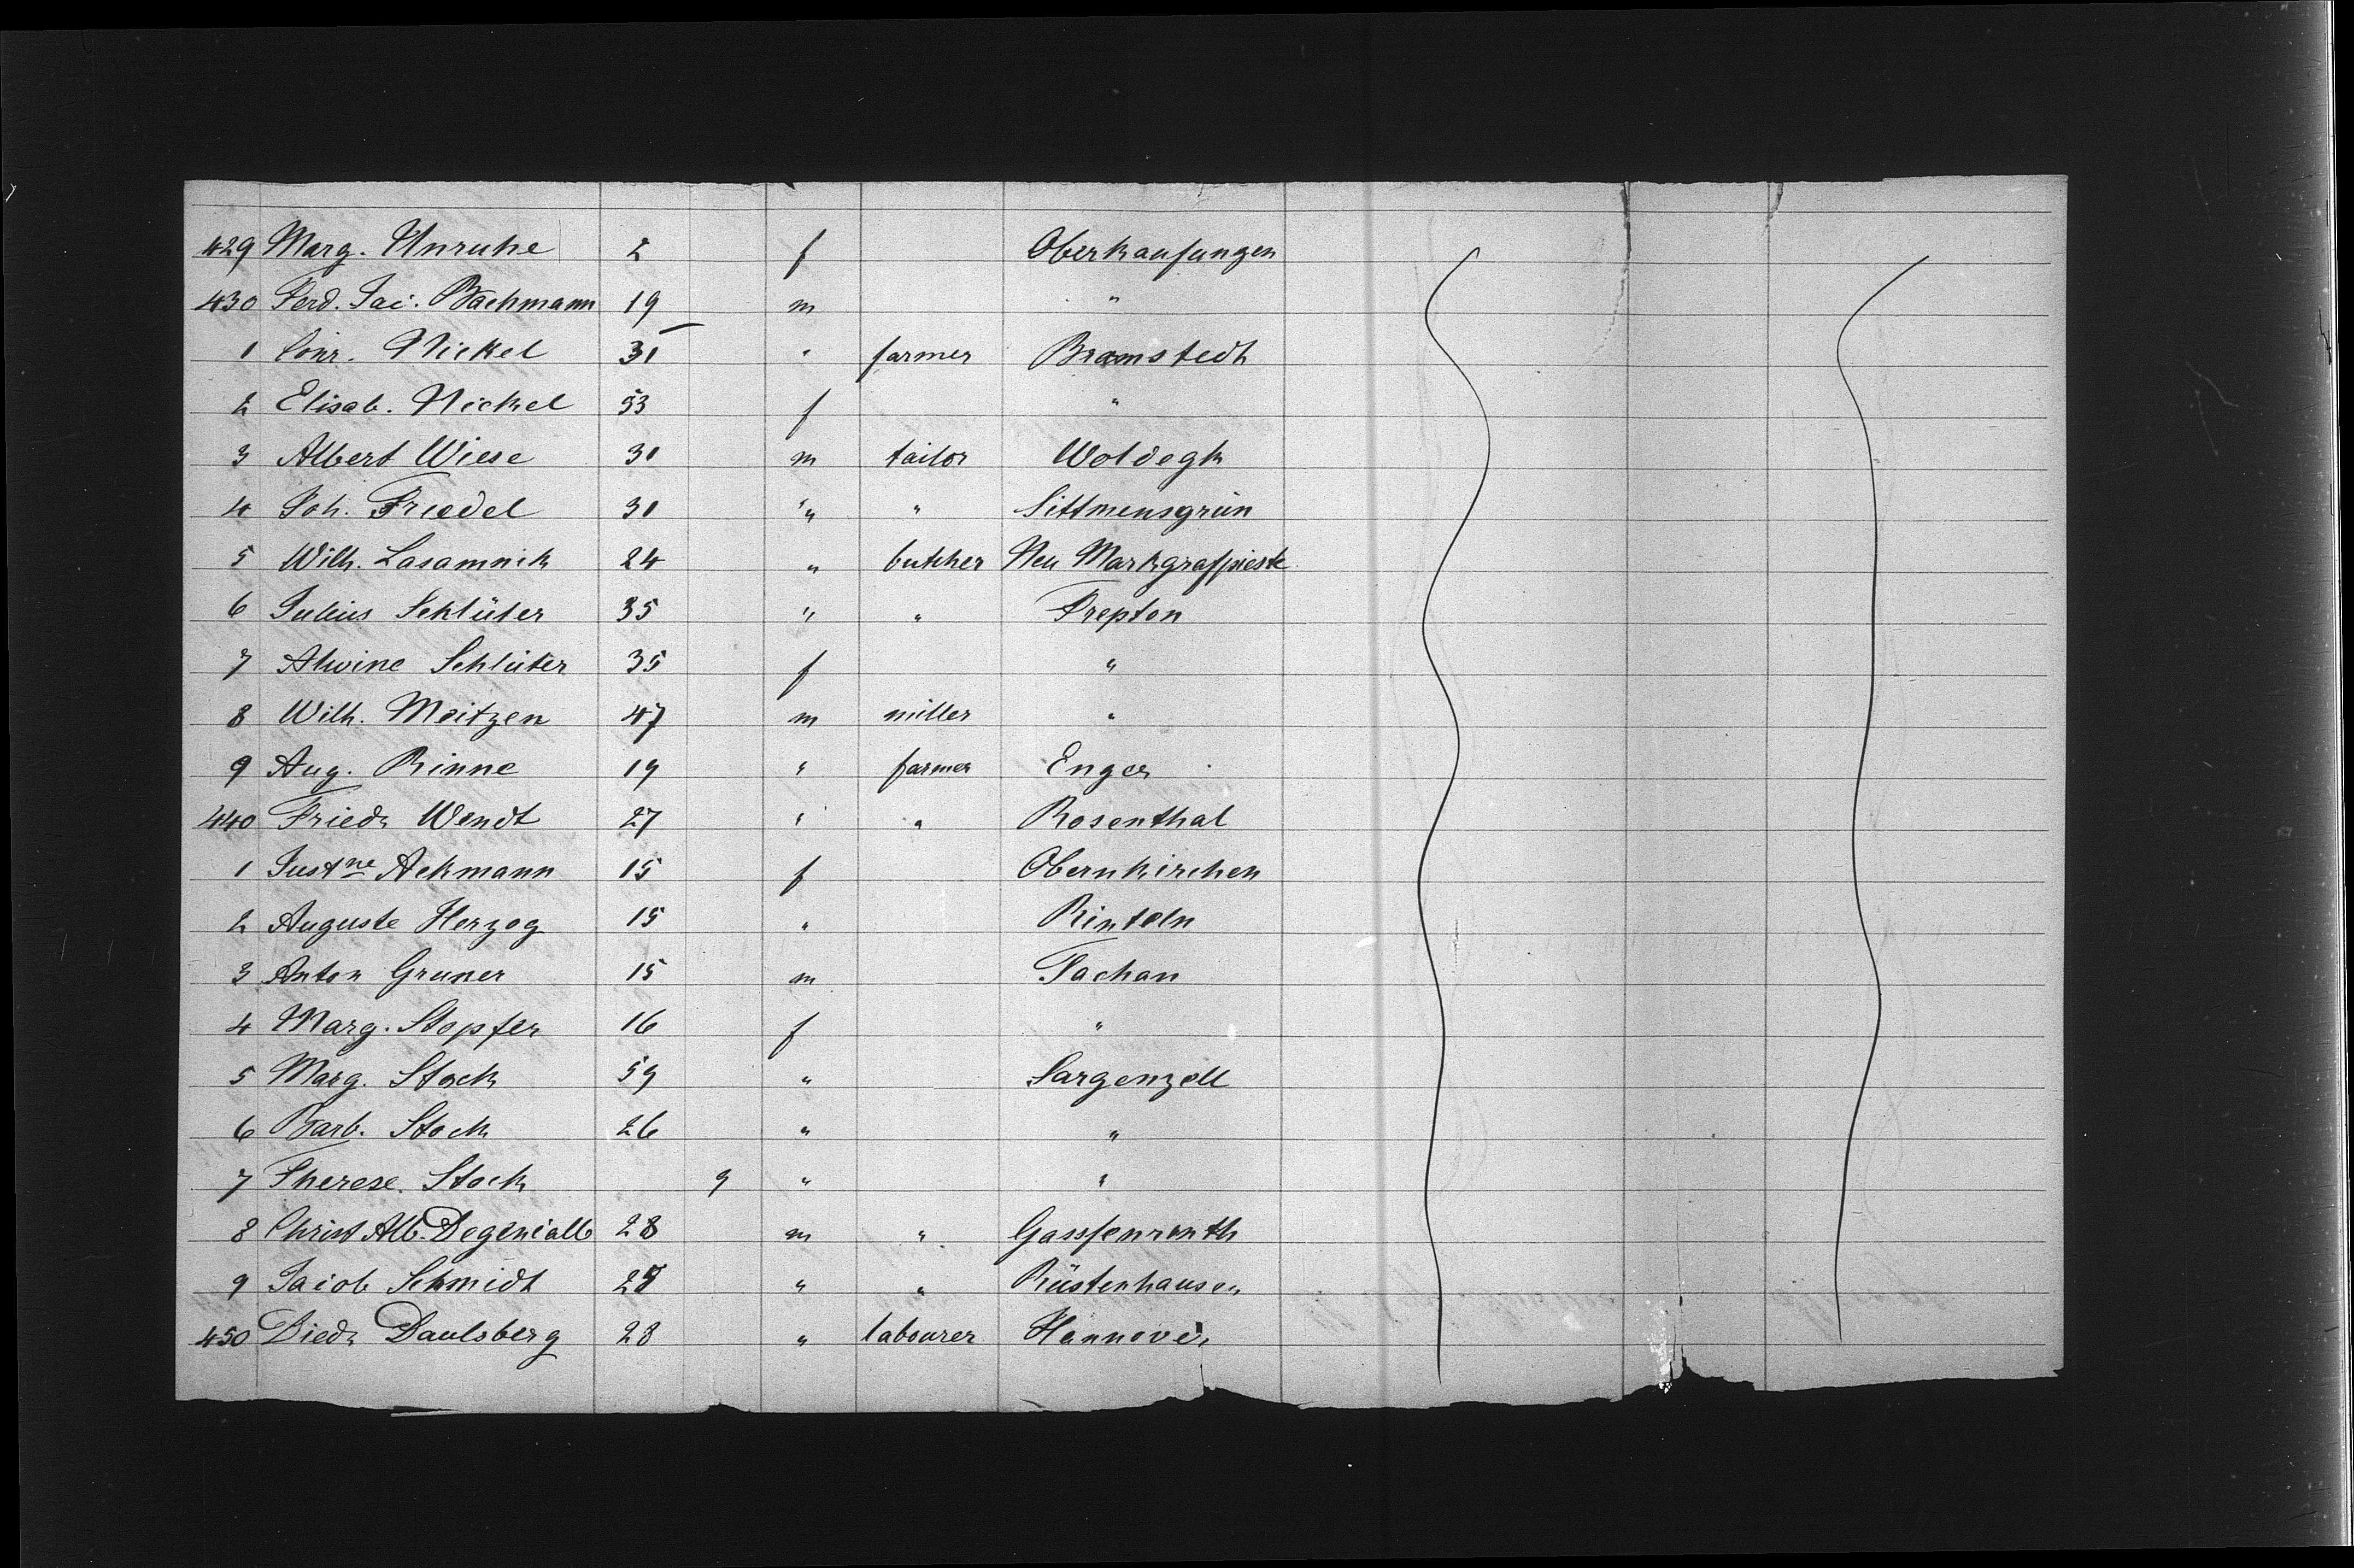 429 Marg. Unruhe 2 f Oberkaufungen
430 Ferd. Jac. Bachmann 19 m "
1 Conr. Nickel 31 " farmer Bramstedt
2 Elisab. Nickel 53 f "
3 Albert Wiese 30 m tailor Woldegk
4 Joh. Friedel 30 " " Sittmensgrün
5 Wilh. Lasamnik 24 " butcher Neu Markgrafpieske
6 Julius Schlüter 35 " " Trepton
7 Alwine Schlüter 35 f "
8 Wilh. Meitzen 47 m miller "
9 Aug. Rinne 19 " farmer Enger
440 Friedr Wendt 27 " " Rosenthal
1 Justne Ackmann 15 f Obernkirchen
2 Auguste Herzog 15 " Rinteln
3 Anton Gruner 15 m Tachan
4 Marg. Stopfer 16 f "
5 Marg. Stock 59 " Sargenzell
6 Barb. Stock 26 " "
7 Therese Stock 9 " "
8 Christ Alb. 28 m "
9 Jacob Schmidt " " Rüstenhausen
450 Diedr Daulsberg 28 " labourer Hannover